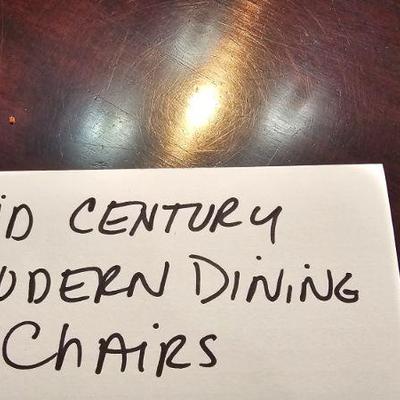 iD CENTURY
ODERN DINING
CHAIRS